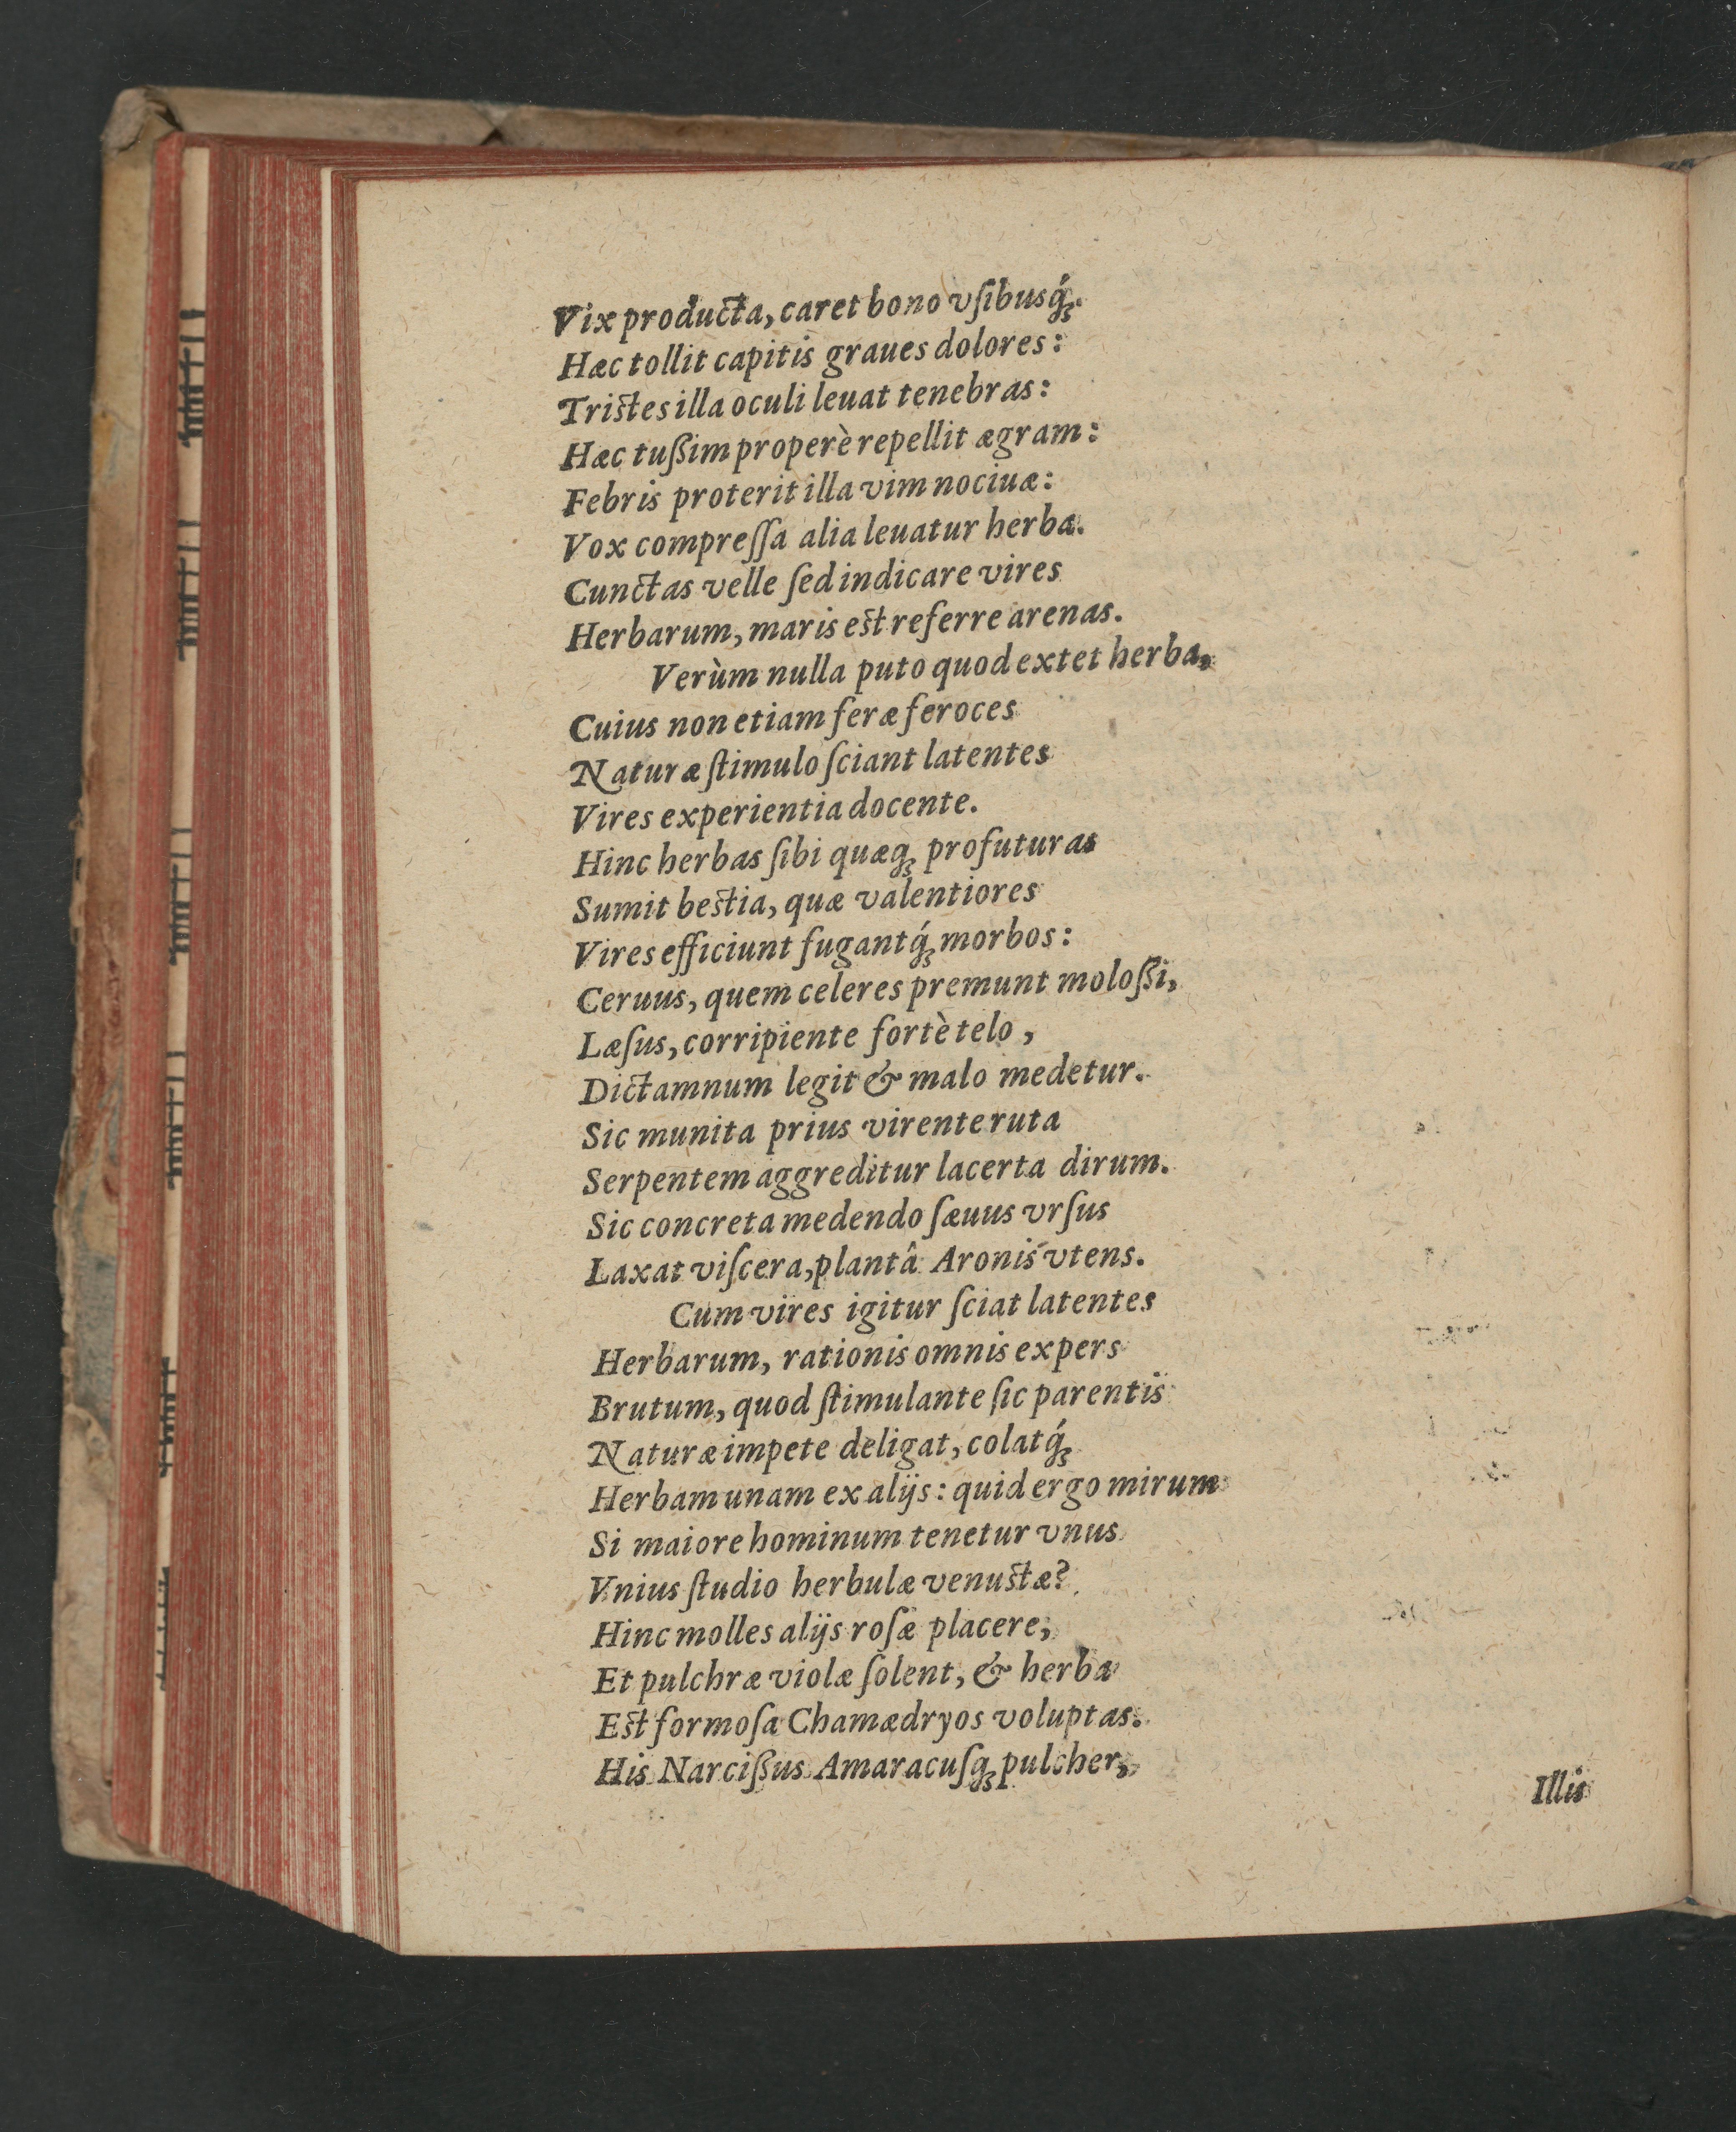 Vix producta, caret bono vſibusq́;.
Hæc tollit capitis graues dolores:
Tristes illa oculi leuat tenebras:
Hæc tußim properè repellit ægram:
Febris proterit illa vim nociuæ:
Vox compreſſa alia leuatur herba.
Cunctas velle ſed indicare vires
Herbarum, maris est referre arenas.
Verùm nulla puto quod extet herba,
Cuius non etiam feræ feroces
Naturæ ſtimulo ſciant latentes
Vires experientia docente.
Hinc herbas ſibi quæq; profuturas
Sumit bestia, quæ valentiores
Vires efficiunt fugantq́; morbos:
Ceruus, quem celeres premunt moloßi,
Læſus, corripiente fortè telo,
Dictamnum legit & malo medetur.
Sic munita prius virente ruta
Serpentem aggreditur lacerta dirum.
Sic concreta medendo ſæuus vrſus
Laxat viſcera, plantâ Aronis vtens.
Cum vires igitur ſciat latentes
Herbarum, rationis omnis expers
Brutum, quod ſtimulante ſic parentis
Naturæ impete deligat, colatq́;
Herbam unam ex alijs: quid ergo mirum
Si maiore hominum tenetur vnus
Vnius ſtudio herbulæ venustæ?
Hinc molles alijs roſæ placere,
Et pulchræ violæ ſolent, & herba
Est formoſa Chamædryos voluptas.
His Narcißus Amaracuſq; pulcher,
Illis